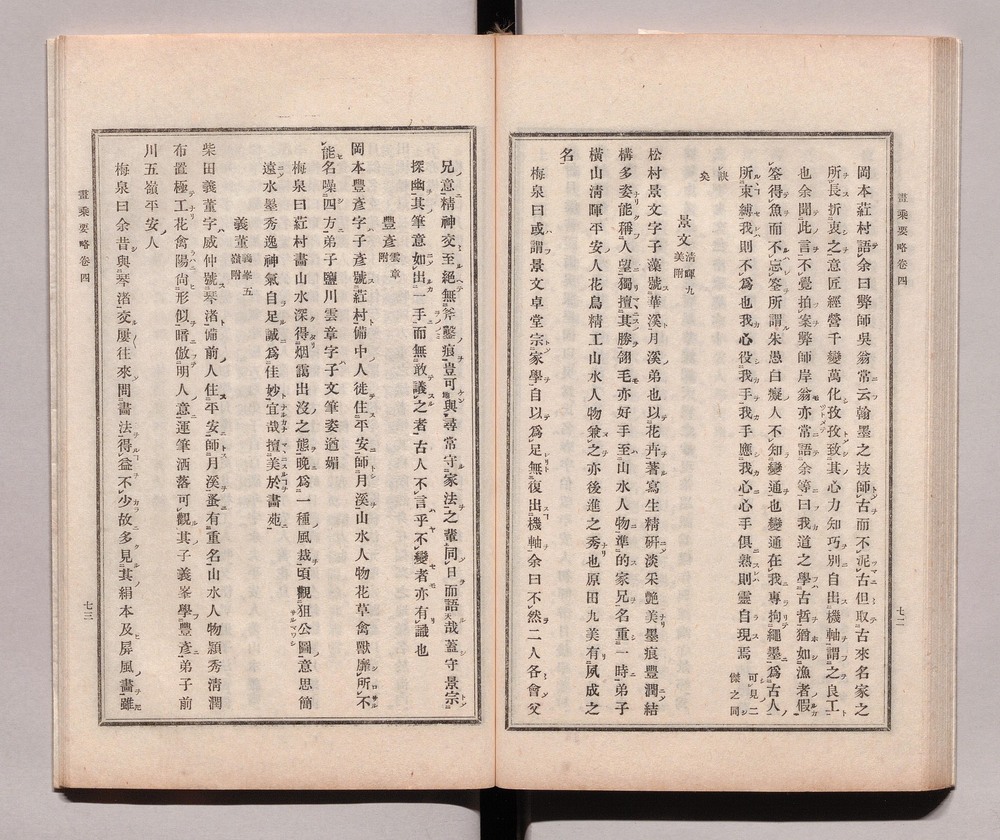 畫乘要略卷四
七二
岡本葒村語余曰弊師吳翁常云翰墨之技師古而不泥古但取古來名家之
所長折衷之意匠經營千變萬化孜孜致其心力知巧別自出機軸謂之良工
也余聞此言不覺拍案弊師岸翁亦常語余等曰我道之學古哲猶如漁者假
筌得魚而不忘筌所謂朱愚白癡人不知變通也變通在我專拘繩墨爲古人
所束縛我則不爲也我心役我手我手應我心心手俱熟則靈自現焉可見二
傑之同
訣
矣
景文清暉 九
美附
松村景文字子藻號華溪月溪弟也以花卉著寫生精研淡采艷美墨痕豐潤結
構多姿能稱人望獨擅其勝翎毛亦好手至山水人物準的家兄名重一時弟子
橫山淸暉平安人花鳥精工山水人物兼之亦後進之秀也原田九美有夙成之
名
梅泉曰或謂景文卓堂宗家學自以爲足無復出機軸余曰不然二人各會父
兄意精神交至絕無斧鑿痕豈可與尋常守家法之輩同日而語哉蓋守景宗
探幽其筆意如出一手而無敢議之者古人不言乎不變者亦有議也
豐彥雲章
附
岡本豐彥字子彥號葒村備中人徙住平安師月溪山水人物花草禽獸靡所不
能名噪四方弟子鹽川雲章字子文筆姿遒媚
梅泉曰葒村畫山水深得烟靄出沒之態晚爲一種風裁頃觀狙公圖意思簡
遠水墨秀逸神氣自足誠爲佳妙宜哉擅美於畫苑
義董義峯 五
嶺附
柴田義董字威仲號琴渚備前人住平安師月溪蚤有重名山水人物頴秀淸潤
布置極工花禽陽尙形似暗倣明人意運筆洒落可觀其子義峯學豐彥弟子前
川五嶺平安人
梅泉曰余昔與琴渚交屢往來間書法得益不少故多見其絹本及屏風畫雖
畫乘要略卷四
七三